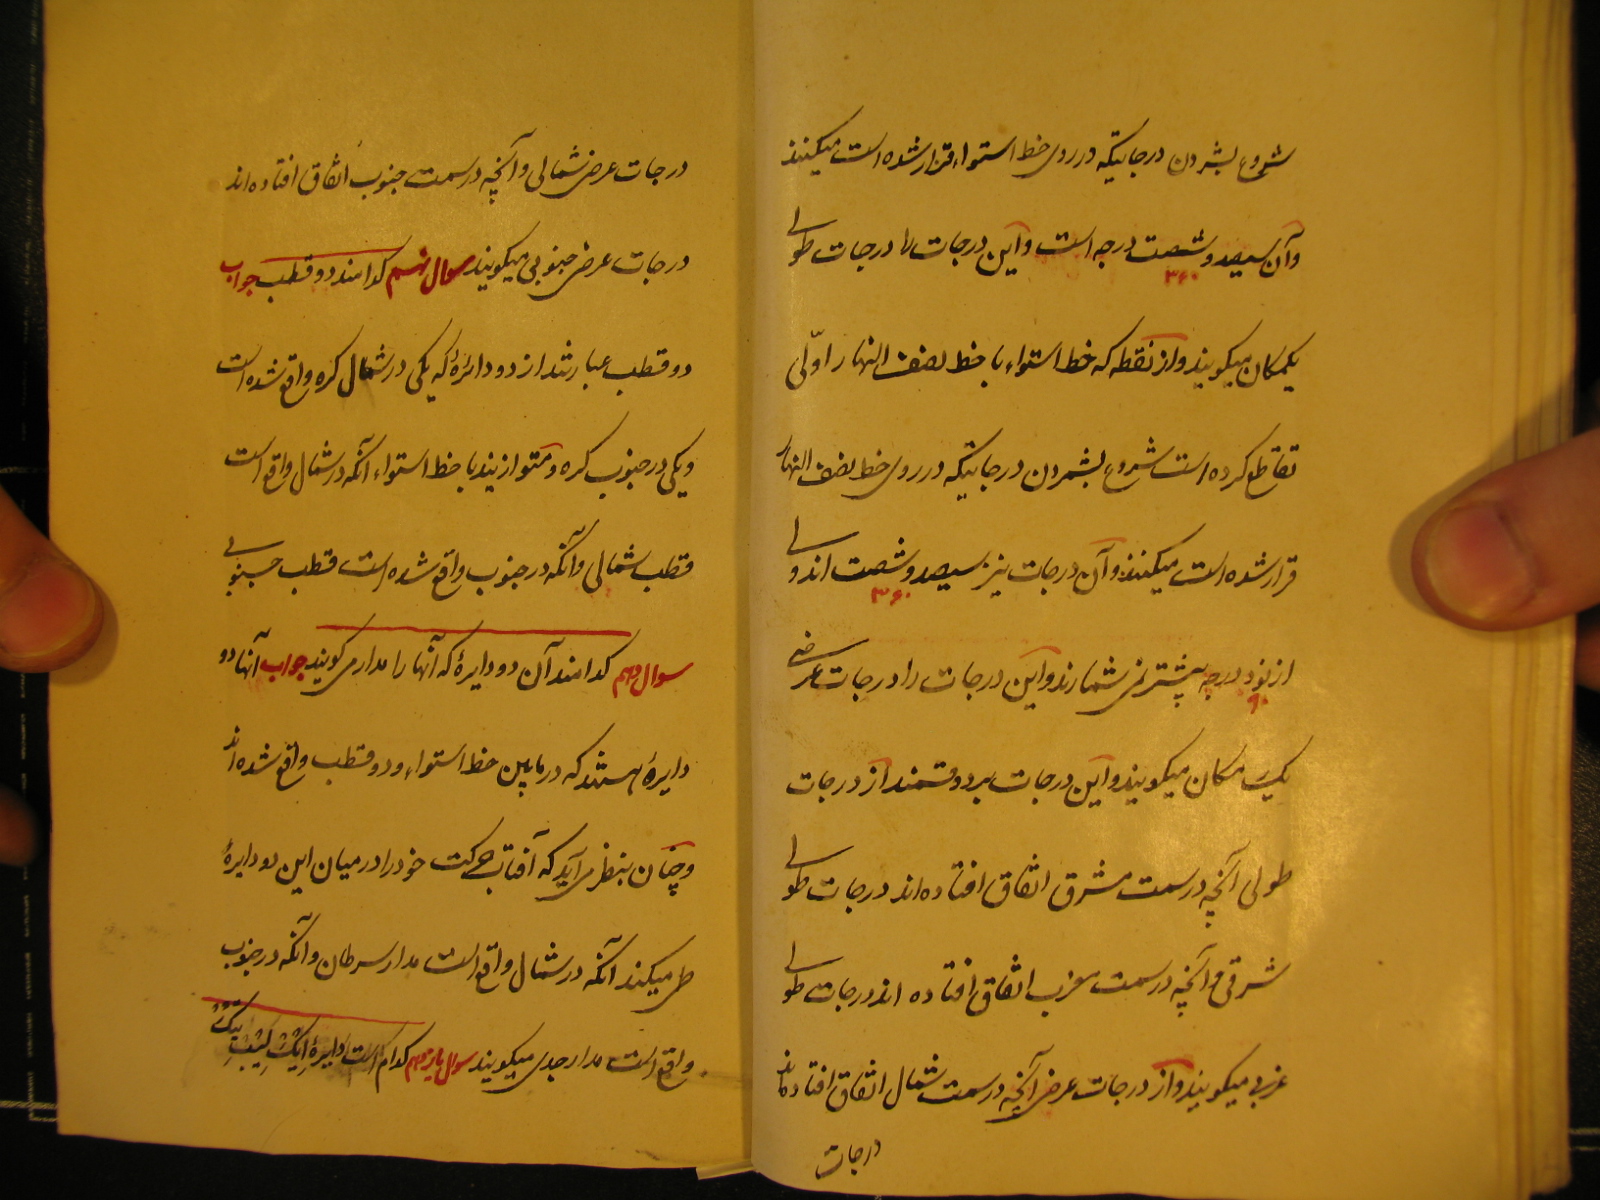 شروع بشمردن درجاتیکه در روی خط استواء قرار شده است میکنند
و آن سیصد و شصت درجه است و این درجات را درجات طولی
۳۶۰
یکمکان میکویند و از نقطه که خط استواء با خط نصف النهار اوّلی
تقاطع کرده است شروع بشمردن درجاتیکه در روی خط نصف النهار
قرار شده است میکنند و آن درجات نیز سیصد و شصت اند ولی
۳۶۰
از نود درجه بیشتر نمی شمارند و این درجات را درجات عرضی
۹۰
یک مکان میکویند و این درجات بر دو قسمند از درجات
طولی آنچه در سمت مشرق اتفاق افتاده اند درجات طولی
شرقی و آنچه در سمت مغرب اتفاق افتاده اند درجات طولی
غربی میکویند و از درجات عرض آنچه در سمت شمال اتفاق افتاده اند
درجات
درجات عرض شمالی و آنچه در سمت جنوب اتفاق افتاده اند
درجات عرض جنوبی میکویند سوال نهم کدامند دو قطب جواب
دو قطب عبارتند از دو دائرهٔ که یکی در شمال کره واقع شده است
و یکی در جنوب کره و متوازیند با خط استواء آنکه در شمال واقع است
قطب شمالی و آنکه در جنوب واقع شده است قطب جنوبی
سوال دهم کدامند آن دو دایرهٔ که آنها را مدار می کویند جواب آنها دو
دایرهٔ هستند که در مابین خط استواء و دو قطب واقع شده اند
و چنان بنظر می آید که آفتاب حرکت خود را در میان این دو دایرهٔ
طی میکند آنکه در شمال واقع است مدار سرطان و آنکه در جنوب
واقع است مدار جدی میکویند سوال یازدهم کدام است دایرهٔ